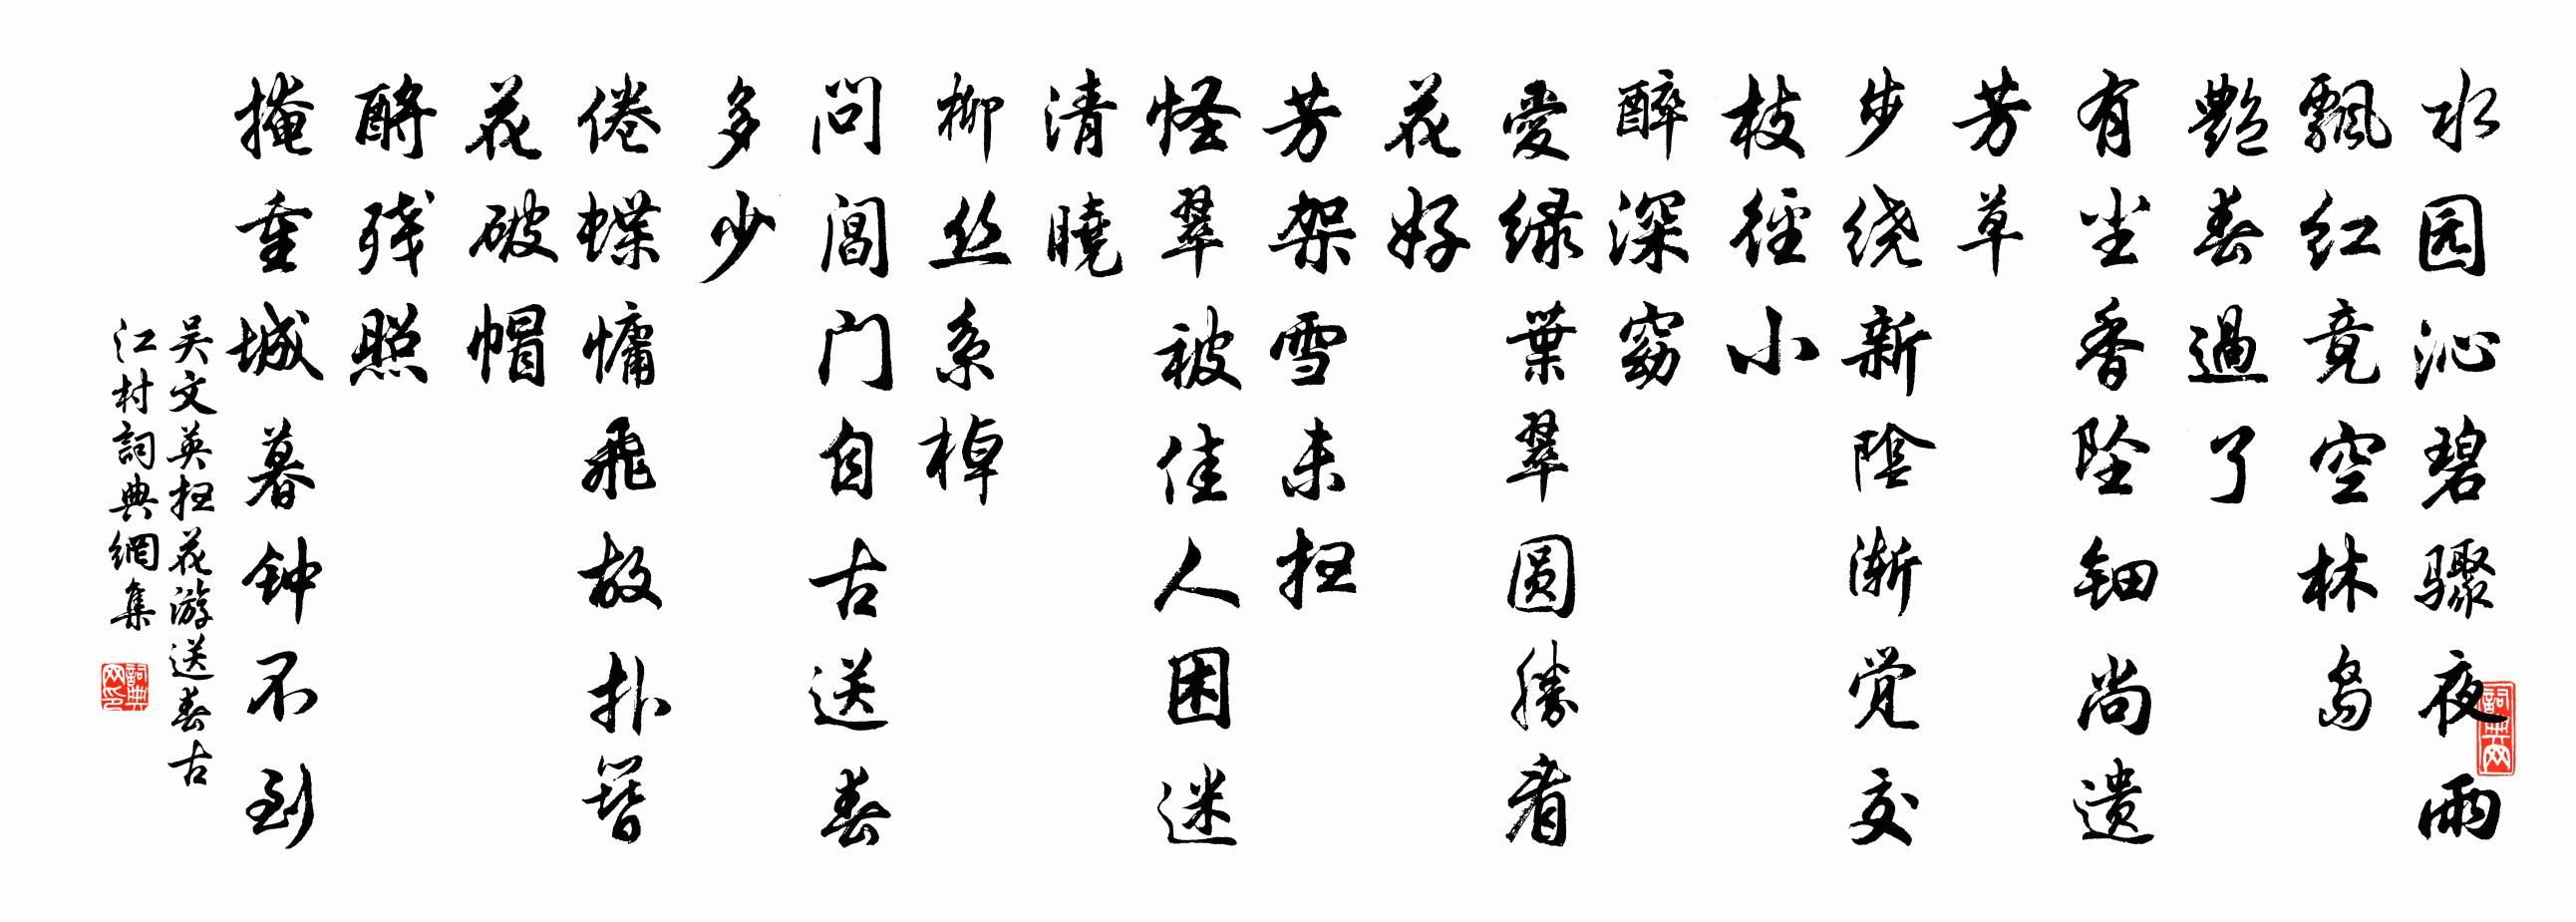 水园沁碧骤夜雨
飘红竟空林岛
艷春過了
有尘香坠钿尚遗
芳草
步绕新陰渐觉交
枝徑小
醉深窈
愛绿葉翠圆勝看
花好
芳架雪未扫
怪翠被佳人困迷
清曉
柳丝系棹
问閶门自古送春
多少
倦蝶慵飛故扑簪
花破帽
酹残照
掩重城暮钟不到
吴文英扫花游送春古
江村詞典網集
詞典网
詞典网印